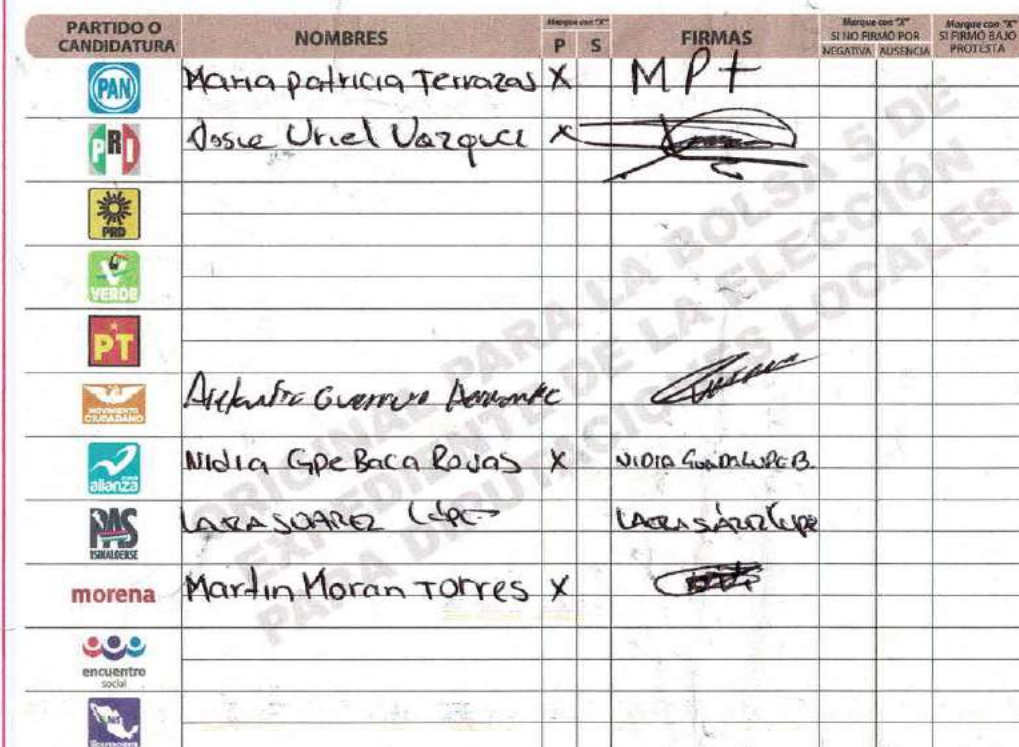 PARTIDO O CANDIDATURA NOMBRES Marque con "X" P S FIRMAS Marque con "X" SI NO FIRMÓ POR NEGATIVA AUSENCIA Marque con "X" SI FIRMÓ BAJO PROTESTA
PAN Maria patricia Terrazas X MPt
PRI Uriel X
PRD
VERDE
PT
MOVIMIENTO CIUDADANO Guerrero
alianza Nidia Gpe Baca Rojas X NIDIA
PAS SINALOENSE
morena Martin Moran Torres X
encuentro social
ORIGINAL PARA LA BOLSA 5 DE
EXPEDIENTE DE LA ELECCIÓN
PARA DIPUTACIONES LOCALES